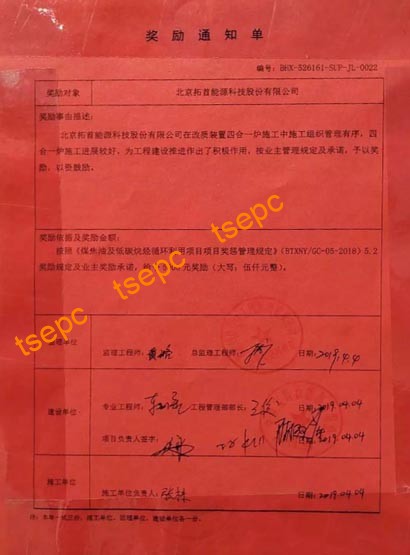 奖励通知单
编号：BHX-326161-SUP-JL-0022
奖励对象
北京拓首能源科技股份有限公司
奖励事由描述：
北京拓首能源科技股份有限公司在改质装置四合一炉施工中施工组织管理有序，四
合一炉施工进展较好，为工程建设推进作出了积极作用，按业主管理规定及承诺，予以奖
励，以资鼓励。
奖励依据及奖励金额：
按照《煤焦油及低碳烷烃循环利用项目项目奖惩管理规定》（BTXNY/GC-05-2018）5.2
奖励规定及业主奖励承诺，给予5000元奖励（大写：伍仟元整）。
tsepc tsepc tsepc
监理单位
监理工程师：
总监理工程师：
日期：2019.4.4
建设单位
专业工程师：
工程管理部部长：
日期：2019.04.04
项目负责人签字：
2019.04.04
施工单位
施工单位负责人：
日期：2019.04.04
注：本单一式三份，施工单位、监理单位、建设单位各一份。